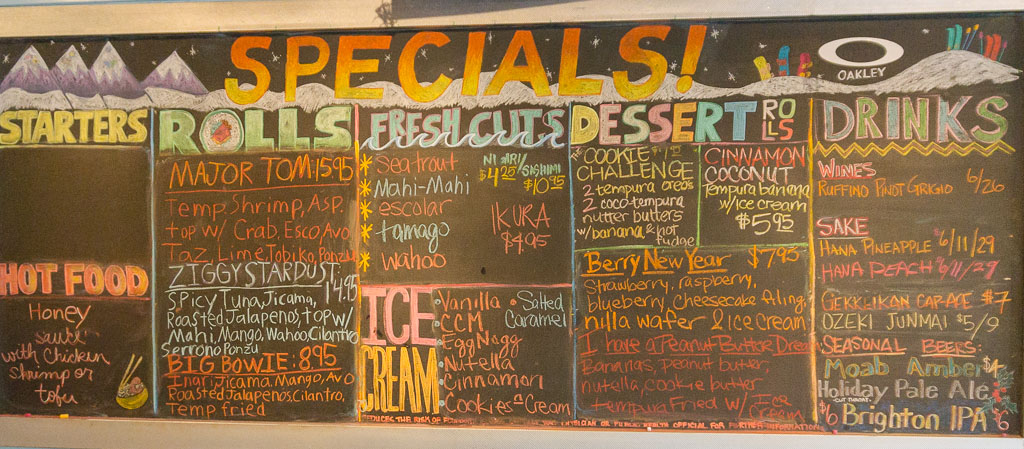 SPECIALS!
OAKLEY
STARTERS
HOT FOOD
Honey
sauté
with Chicken
shrimp or
tofu
ROLLS
MAJOR TOM: 15.95
Temp. Shrimp, Asp.
top w/ Crab, Esco, Avo
Taz, Lime Tobiko, Ponzu
ZIGGY STARDUST: 14.95
Spicy Tuna, Jicama,
Roasted Jalapenos, top w/
Mahi, Mango, Wahoo, Cilantro
Serrono Ponzu
BIG BOWIE: 8.95
Inari, Jicama, Mango, Avo
Roasted Jalapenos, Cilantro,
Temp fried
FRESH CUTS
NIGIRI/SASHIMI
$4.25 $10.95
Sea trout
Mahi-Mahi
escolar
tamago
wahoo
IKURA
$4.95
ICE
CREAM
Vanilla
CCM
Egg Nogg
Nutella
Cinnamon
Cookies n Cream
Salted
Caramel
DESSERT ROLLS
THE COOKIE
CHALLENGE
2 tempura oreos
2 coco tempura
nutter butters
w/ banana & hot
fudge
CINNAMON
COCONUT
Tempura banana
w/ ice cream
$5.95
Berry New Year $7.95
Strawberry, raspberry,
blueberry, cheesecake filing,
nilla wafer & ice cream
I have a Peanut Butter Dream
Bananas, peanut butter,
nutella, cookie butter
tempura fried w/ Ice
Cream
PHYSICIAN OR PUBLIC HEALTH OFFICIAL FOR FURTHER INFORMATION
DRINKS
WINES
RUFFINO PINOT GRIGIO 6/26
SAKE
HANA PINEAPPLE $6/11/29
HANA PEACH $6/11/29
GEKKEIKAN CARAFE $7
OZEKI JUNMAI $5/9
SEASONAL BEERS:
Moab Amber $4
Holiday Pale Ale
CUT THROAT
$6 Brighton IPA $6